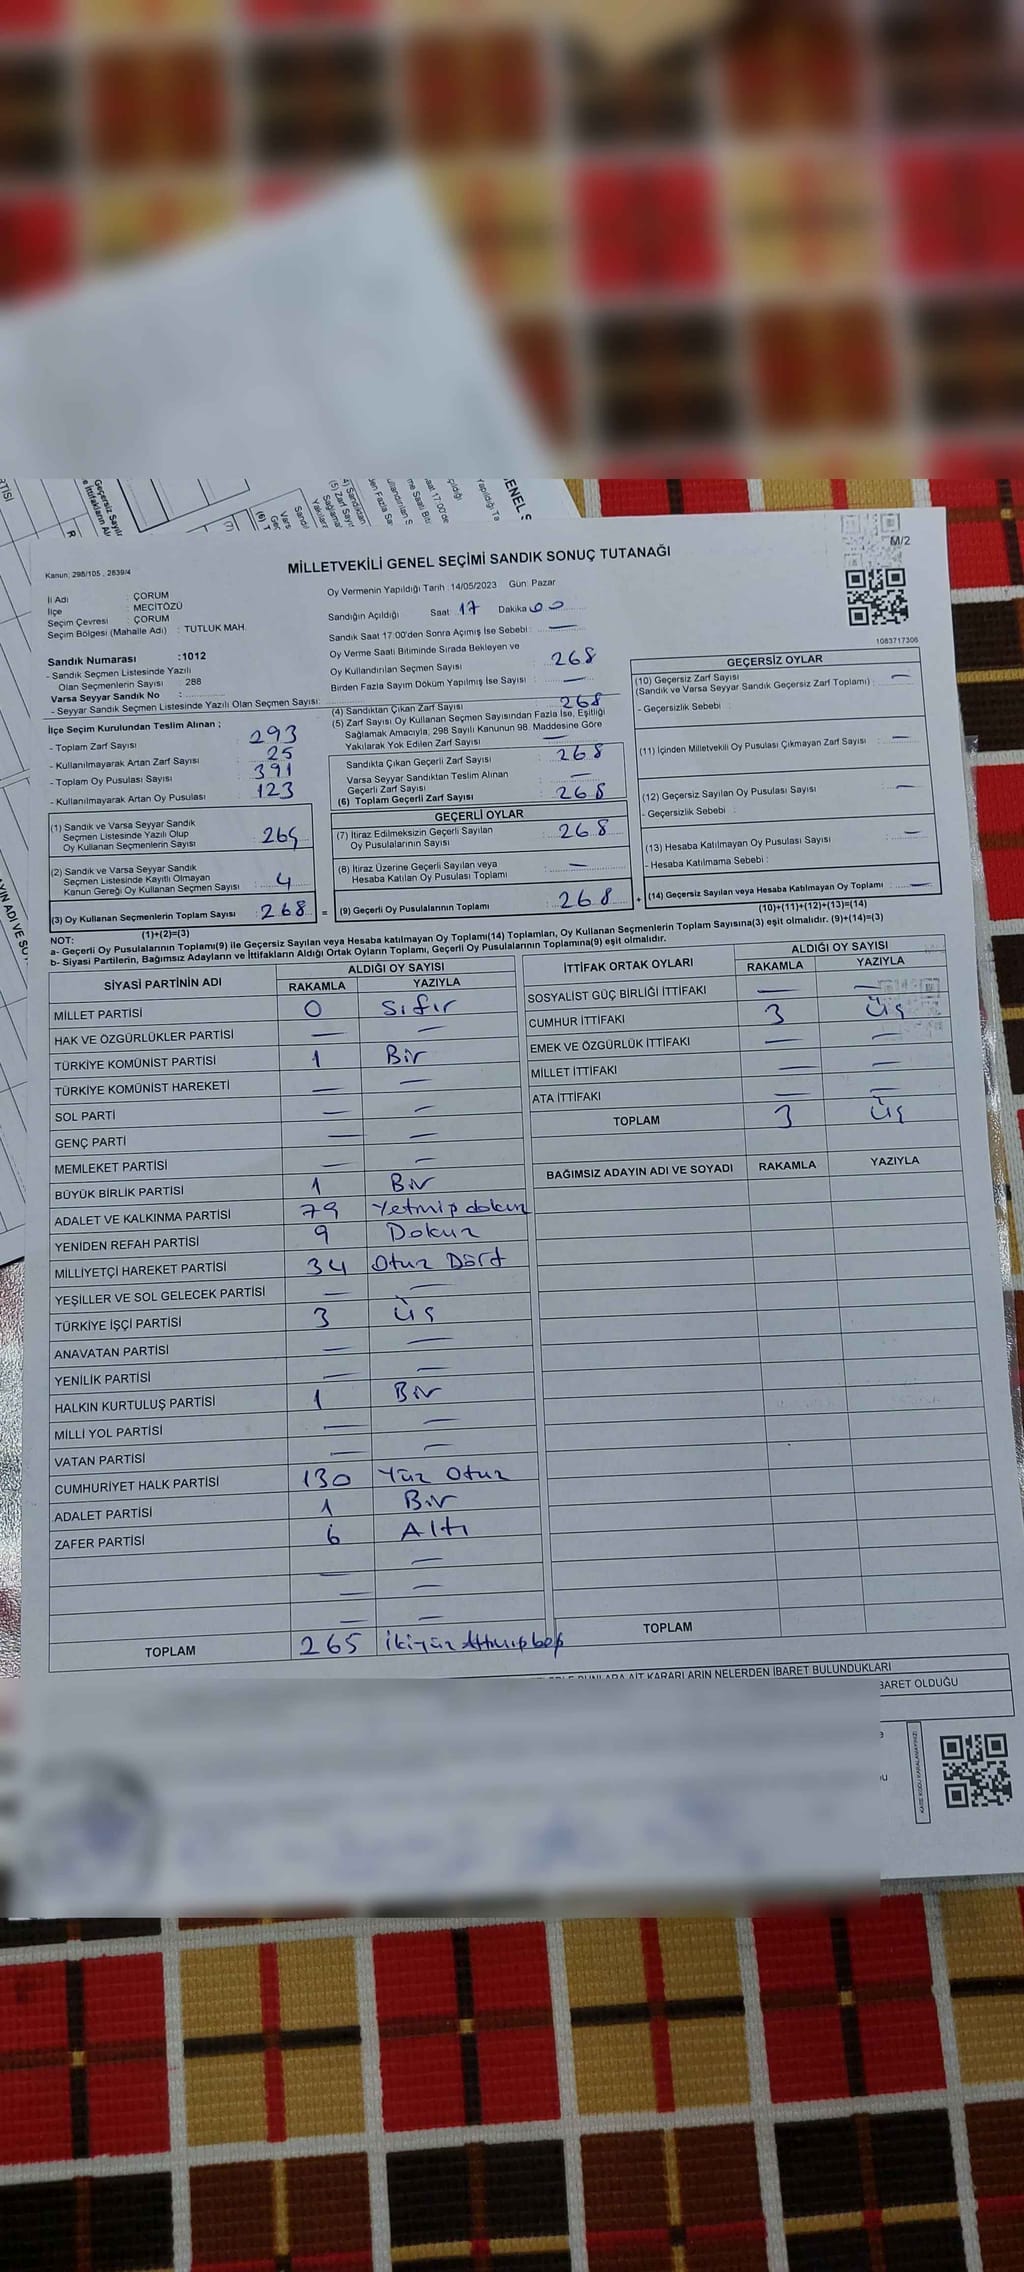 MİLLETVEKİLİ GENEL SEÇİMİ SANDIK SONUÇ TUTANAĞI
M/2
Kanun: 298/105 , 2839/4
İl Adı : ÇORUM
İlçe : MECİTÖZÜ
Seçim Çevresi : ÇORUM
Seçim Bölgesi (Mahalle Adı) : TUTLUK MAH.
Sandık Numarası :1012
- Sandık Seçmen Listesinde Yazılı
Olan Seçmenlerin Sayısı 288
Varsa Seyyar Sandık No :
- Seyyar Sandık Seçmen Listesinde Yazılı Olan Seçmen Sayısı:
Oy Vermenin Yapıldığı Tarih :14/05/2023 Gün: Pazar
Sandığın Açıldığı Saat 17 Dakika 00
Sandık Saat 17:00'den Sonra Açımış İse Sebebi : —
Oy Verme Saati Bitiminde Sırada Bekleyen ve
Oy Kullandırılan Seçmen Sayısı : 268
Birden Fazla Sayım Döküm Yapılmış İse Sayısı : —
1083717306
İlçe Seçim Kurulundan Teslim Alınan ;
- Toplam Zarf Sayısı : 293
- Kullanılmayarak Artan Zarf Sayısı : 25
- Toplam Oy Pusulası Sayısı : 391
- Kullanılmayarak Artan Oy Pusulası : 123
(1) Sandık ve Varsa Seyyar Sandık
Seçmen Listesinde Yazılı Olup
Oy Kullanan Seçmenlerin Sayısı
(2) Sandık ve Varsa Seyyar Sandık
Seçmen Listesinde Kayıtlı Olmayan
Kanun Gereği Oy Kullanan Seçmen Sayısı : 4
(3) Oy Kullanan Seçmenlerin Toplam Sayısı : 268 =
(1)+(2)=(3)
(4) Sandıktan Çıkan Zarf Sayısı : 268
(5) Zarf Sayısı Oy Kullanan Seçmen Sayısından Fazla İse, Eşitliği
Sağlamak Amacıyla; 298 Sayılı Kanunun 98. Maddesine Göre
Yakılarak Yok Edilen Zarf Sayısı : —
Sandıkta Çıkan Geçerli Zarf Sayısı : 268
Varsa Seyyar Sandıktan Teslim Alınan
Geçerli Zarf Sayısı : —
(6) Toplam Geçerli Zarf Sayısı : 268
GEÇERLİ OYLAR
(7) İtiraz Edilmeksizin Geçerli Sayılan
Oy Pusulalarının Sayısı : 268
(8) İtiraz Üzerine Geçerli Sayılan veya
Hesaba Katılan Oy Pusulası Toplamı : —
(9) Geçerli Oy Pusulalarının Toplamı : 268 +
GEÇERSİZ OYLAR
(10) Geçersiz Zarf Sayısı
(Sandık ve Varsa Seyyar Sandık Geçersiz Zarf Toplamı) : —
- Geçersizlik Sebebi :
(11) İçinden Milletvekili Oy Pusulası Çıkmayan Zarf Sayısı : —
(12) Geçersiz Sayılan Oy Pusulası Sayısı : —
- Geçersizlik Sebebi :
(13) Hesaba Katılmayan Oy Pusulası Sayısı : —
- Hesaba Katılmama Sebebi :
(14) Geçersiz Sayılan veya Hesaba Katılmayan Oy Toplamı : —
(10)+(11)+(12)+(13)=(14)
NOT:
a- Geçerli Oy Pusulalarının Toplamı(9) ile Geçersiz Sayılan veya Hesaba katılmayan Oy Toplamı(14) Toplamları, Oy Kullanan Seçmenlerin Toplam Sayısına(3) eşit olmalıdır. (9)+(14)=(3)
b- Siyasi Partilerin, Bağımsız Adayların ve İttifakların Aldığı Ortak Oyların Toplamı, Geçerli Oy Pusulalarının Toplamına(9) eşit olmalıdır.
SİYASİ PARTİNİN ADI ALDIĞI OY SAYISI
RAKAMLA YAZIYLA
MİLLET PARTİSİ 0 Sıfır
HAK VE ÖZGÜRLÜKLER PARTİSİ — —
TÜRKİYE KOMÜNİST PARTİSİ 1 Bir
TÜRKİYE KOMÜNİST HAREKETİ — —
SOL PARTİ — —
GENÇ PARTİ — —
MEMLEKET PARTİSİ — —
BÜYÜK BİRLİK PARTİSİ 1 Bir
ADALET VE KALKINMA PARTİSİ 79 Yetmiş dokuz
YENİDEN REFAH PARTİSİ 9 Dokuz
MİLLİYETÇİ HAREKET PARTİSİ 34 Otuz Dört
YEŞİLLER VE SOL GELECEK PARTİSİ — —
TÜRKİYE İŞÇİ PARTİSİ 3 Üç
ANAVATAN PARTİSİ — —
YENİLİK PARTİSİ — —
HALKIN KURTULUŞ PARTİSİ 1 Bir
MİLLİ YOL PARTİSİ — —
VATAN PARTİSİ — —
CUMHURİYET HALK PARTİSİ 130 Yüz Otuz
ADALET PARTİSİ 1 Bir
ZAFER PARTİSİ 6 Altı
— —
— —
— —
TOPLAM 265 İkiyüz Altmışbeş
İTTİFAK ORTAK OYLARI ALDIĞI OY SAYISI
RAKAMLA YAZIYLA
SOSYALİST GÜÇ BİRLİĞİ İTTİFAKI — —
CUMHUR İTTİFAKI 3 Üç
EMEK VE ÖZGÜRLÜK İTTİFAKI — —
MİLLET İTTİFAKI — —
ATA İTTİFAKI — —
TOPLAM 3 Üç
BAĞIMSIZ ADAYIN ADI VE SOYADI RAKAMLA YAZIYLA
TOPLAM
AİT KARARLARIN NELERDEN İBARET BULUNDUKLARI
BARET OLDUĞU